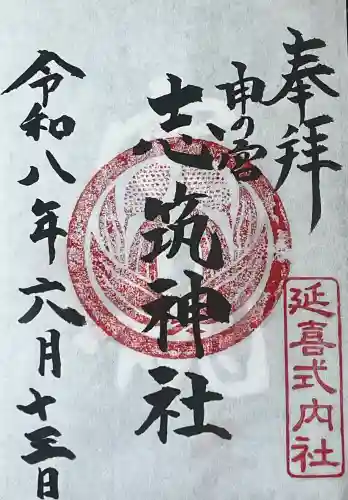 奉拝
延喜式内社
申の宮
志筑神社
令和八年六月十三日